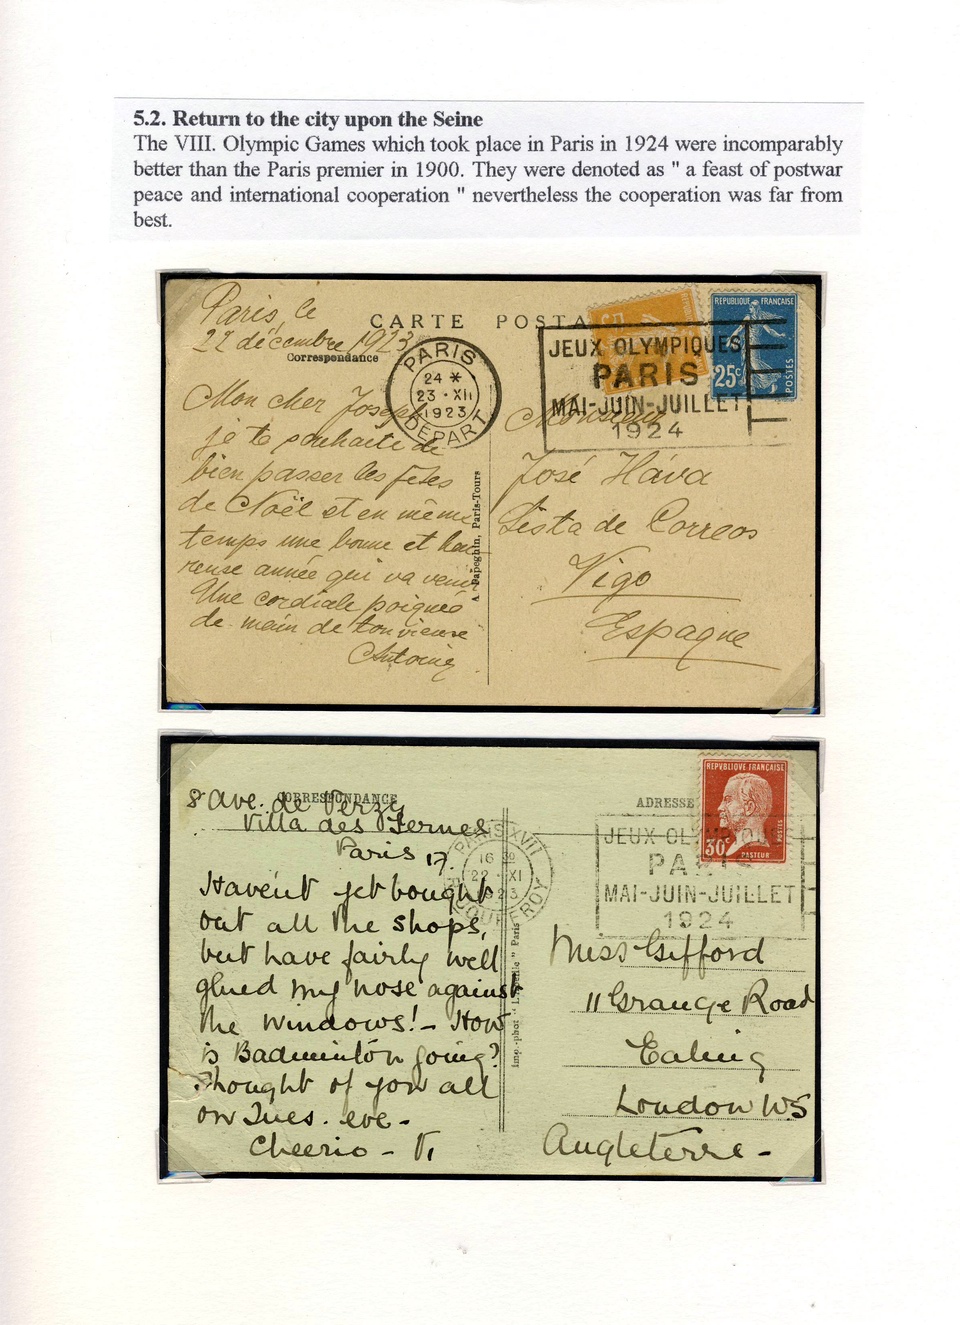 5.2. Return to the city upon the Seine
The VIII. Olympic Games which took place in Paris in 1924 were incomparably
better than the Paris premier in 1900. They were denoted as " a feast of postwar
peace and international cooperation " nevertheless the cooperation was far from
best.
Paris, le
22 décembre 1923
CARTE POSTA
Correspondance
Mon cher Joseph
je te souhaite de
bien passer les fetes
de Noël et en même
temps une bonne et heu
reuse année qui va venir
Une cordiale poignée
de main de ton vieux
Antoine
A. Papeghin, Paris-Tours
PARIS
24 *
23 · XII
1923
DEPART
JEUX OLYMPIQUES
PARIS
MAI-JUIN-JUILLET
1924
REPUBLIQUE FRANÇAISE
25c
POSTES
Monsieur
José Háva
Lista de Correos
Vigo
Espagne
CORRESPONDANCE
8 Ave. de
Villa des Ternes
Paris 17.
Haven't yet bought
out all the shops,
but have fairly well
glued my nose against
the windows! - How
is Badminton going?
Thought of you all
on Tues. eve -
Cheerio - V,
PARIS XVII
16 30
22 · XI
1923
Imp.-phot
Paris
ADRESSE
REPVBLIQVE FRANÇAISE
30c
POSTES
PASTEUR
JEUX OLYMPIQUES
PARIS
MAI-JUIN-JUILLET
1924
Miss Gifford
11 Grange Road
Ealing
London W5
Angleterre -